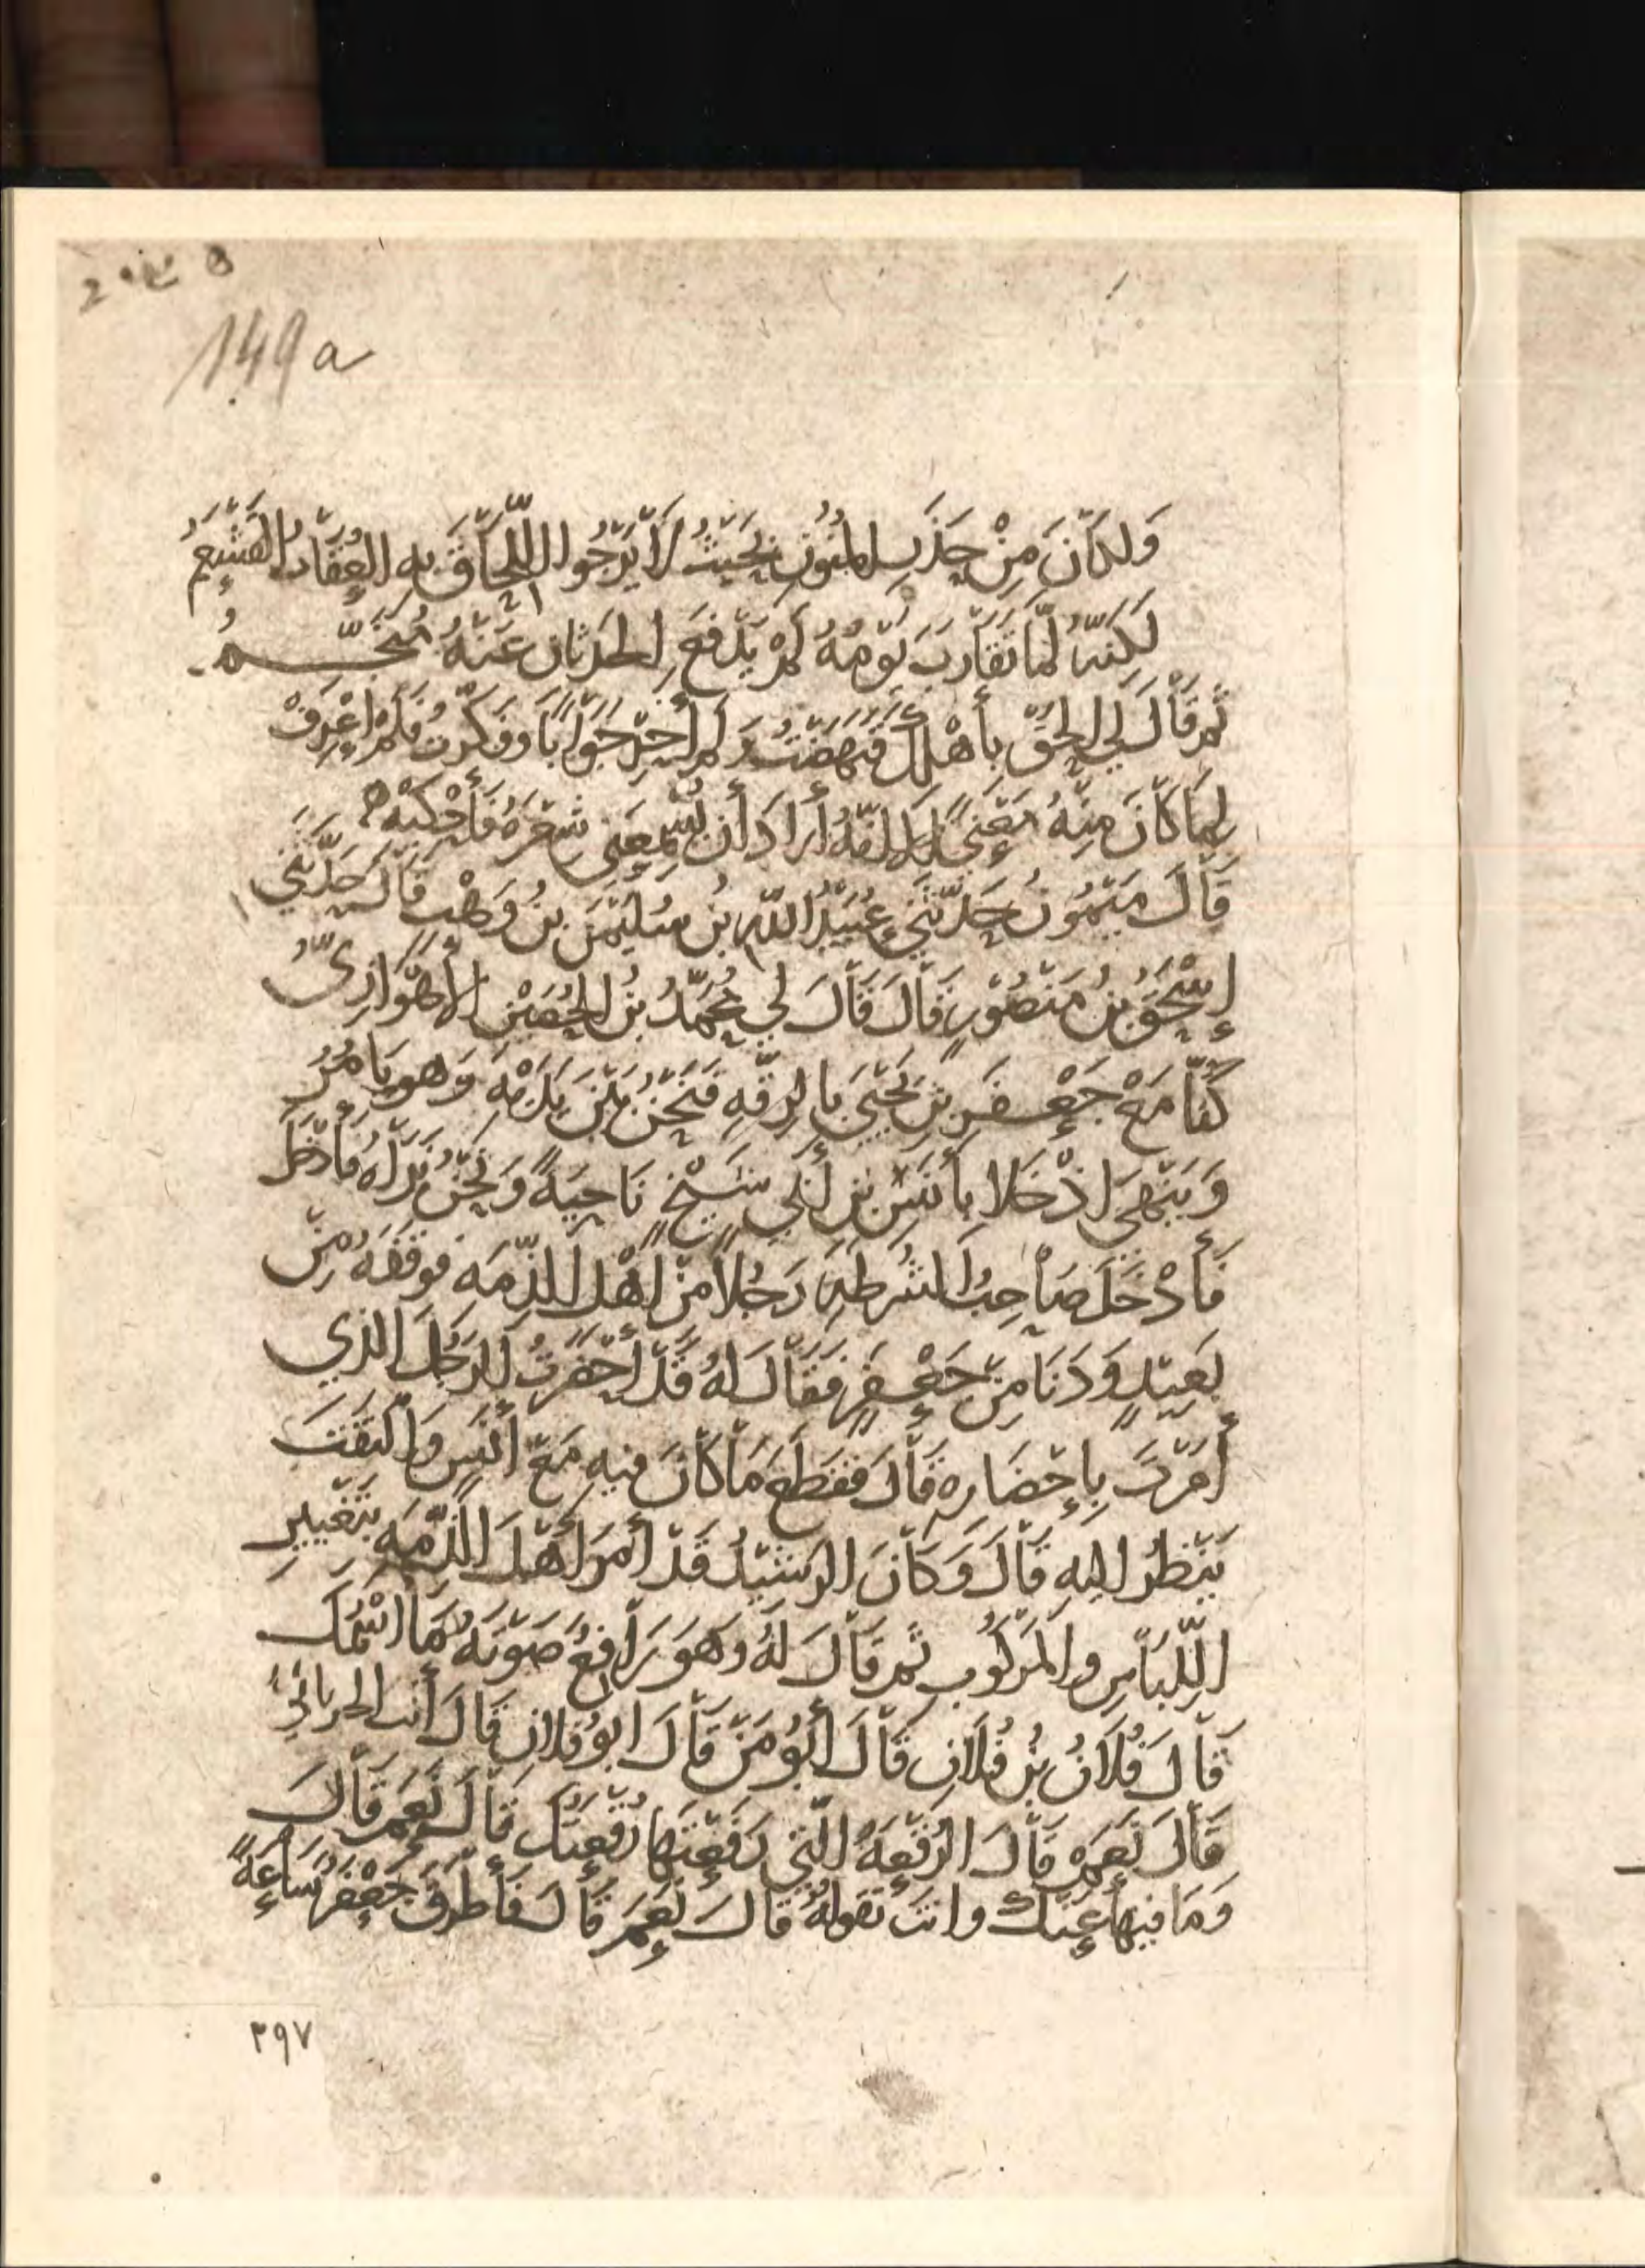 149a
وَلَكَانَ مِنْ حَذَرِ المَنُونِ بِحَيْثُ لَا يَرْجُوا اللَّحَاقَ بِهِ العُقَابُ القَشْعَمُ
لَكِنَّهُ لَمَّا تَقَارَبَ يَوْمُهُ لَمْ يَدْفَعِ الحَدَثَانَ عَنْهُ مُنَجِّمُ
ثُمَّ قَالَ لِي الحَقْ بِأَهْلِكَ فَنَهَضْتُ وَلَمْ أُحِرْ جَوَابًا وَفَكَّرْتُ فَلَمْ أَعْرِفْ
لِمَا كَانَ مِنْهُ مَعْنًى إِلَّا أَنَّهُ أَرَادَ أَنْ يُسْمِعَنِي شِعْرَهُ فَأَحْكِيَهُ
قَالَ مَيْمُونُ حَدَّثَنِي عُبَيْدُ اللَّهِ بْنُ سُلَيْمَنَ بْنِ وَهْبٍ قَالَ حَدَّثَنِي
إِسْحَقُ بْنُ مَنْصُورٍ قَالَ قَالَ لِي مُحَمَّدُ بْنُ الحُصَيْنِ الأَهْوَازِيُّ
كُنَّا مَعَ جَعْفَرِ بْنِ يَحْيَى بِالرَّقَّةِ فَنَحْنُ بَيْنَ يَدَيْهِ وَهُوَ يَأْمُرُ
وَيَنْهَى إِذْ خَلَا بِأَنَسِ بْنِ أَبِي شَيْخٍ نَاحِيَةً وَنَحْنُ نَرَاهُ فَأَدْخَلَ
فَأَدْخَلَ صَاحِبُ الشُرْطَةِ رَجُلًا مِنْ أَهْلِ الذِّمَّةِ فَوَقَفَهُ مِنْ
بَعِيدٍ وَدَنَا مِنْ جَعْفَرٍ فَقَالَ لَهُ قَدْ أَحْضَرْتُ الرَجُلَ الَّذِي
أَمَرْتَ بِإِحْضَارِهِ قَالَ فَقَطَعَ مَا كَانَ فِيهِ مَعَ أَنَسٍ وَالْتَفَتَ
يَنْظُرُ إِلَيْهِ قَالَ وَكَانَ الرَشِيدُ قَدْ أَمَرَ أَهْلَ الذِّمَّةِ بِتَغْيِيرِ
اللِّبَاسِ وَالمَرْكُوبِ ثُمَّ قَالَ لَهُ وَهُوَ رَافِعٌ صَوْتَهُ مَا اسْمُكَ
قَالَ فُلَانُ بْنُ فُلَانٍ قَالَ أَبُو مَنْ قَالَ أَبُو فُلَانٍ قَالَ أَنْتَ الحَرَّانِيُّ
قَالَ نَعَمْ قَالَ الرُقْعَةُ الَّتِي رَفَعْتَهَا رُقْعَتُكَ قَالَ نَعَمْ قَالَ
وَمَا فِيهَا عَنْكَ وَأَنْتَ تَقُولُهُ قَالَ نَعَمْ قَالَ فَأَطْرَقَ جَعْفَرٌ سَاعَةً
٣٩٧